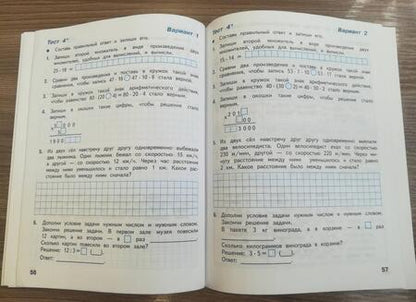 Тест 4*
Вариант 1
Составь правильный ответ и запиши его.
1. Запиши второй множитель в виде произведения двух
множителей, удобных для вычислений, и вычисли.
25 · 18 =
2. Сравни два произведения и поставь в кружок такой знак
3. Запиши в кружке такой знак арифметического действия,
чтобы равенство 80 · (20 4) = 80 · 20 · 4 стало верным.
4. Запиши в окошки такие цифры, чтобы решение стало
верным.
5. Из двух сёл навстречу друг другу одновременно выбежали
два лыжника. Один лыжник бежал со скоростью 15 км/ч,
а другой — со скоростью 12 км/ч. Через час расстояние
между ними уменьшилось и стало равно 1 км. Какое расстояние
было между ними сначала?
6. Дополни условие задачи нужным числом и нужным словом.
Закончи решение задачи. В первом зале музея повесили
12 картин, а во втором — в раз
Сколько картин повесили во втором зале?
Решение: 12 : 3 =
Ответ:
56
Тест 4*
Вариант 2
Составь правильный ответ и запиши его.
1. Запиши второй множитель в виде произведения двух
множителей, удобных для вычислений, и вычисли.
15 · 14 =
2. Сравни два произведения и поставь в кружок такой знак
3. Запиши в кружке такой знак арифметического действия,
4. Запиши в окошки такие цифры, чтобы решение стало
верным.
3000
5. Из двух сёл навстречу друг другу одновременно выехали
два велосипедиста. Один велосипедист ехал со скоростью
230 м/мин, другой — со скоростью 220 м/мин. Через минуту
расстояние между ними уменьшилось и стало равно
2 км. Какое расстояние было между ними сначала?
6. Дополни условие задачи нужным числом и нужным словом.
Закончи решение задачи.
В пакете 3 кг винограда, а в корзине — в раз
Сколько килограммов винограда в корзине?
Решение: 3 · 5 =
Ответ:
57